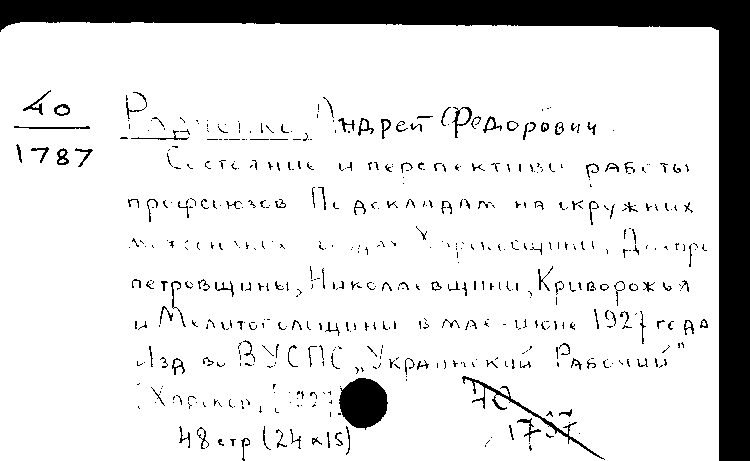 40
1787
Радченко, Андрей Федорович.
Состояние и перспективы работы
профсоюзов По докладам на окружных
съездах Харьковщины, Днепро
петровщины, Николаевщины, Криворожья
и Мелитопольщины в мае-июне 1927 года
Изд во ВУСПС „Украинский Рабочий"
[Харьков, [1927]
48 стр (24х15)
40
1787